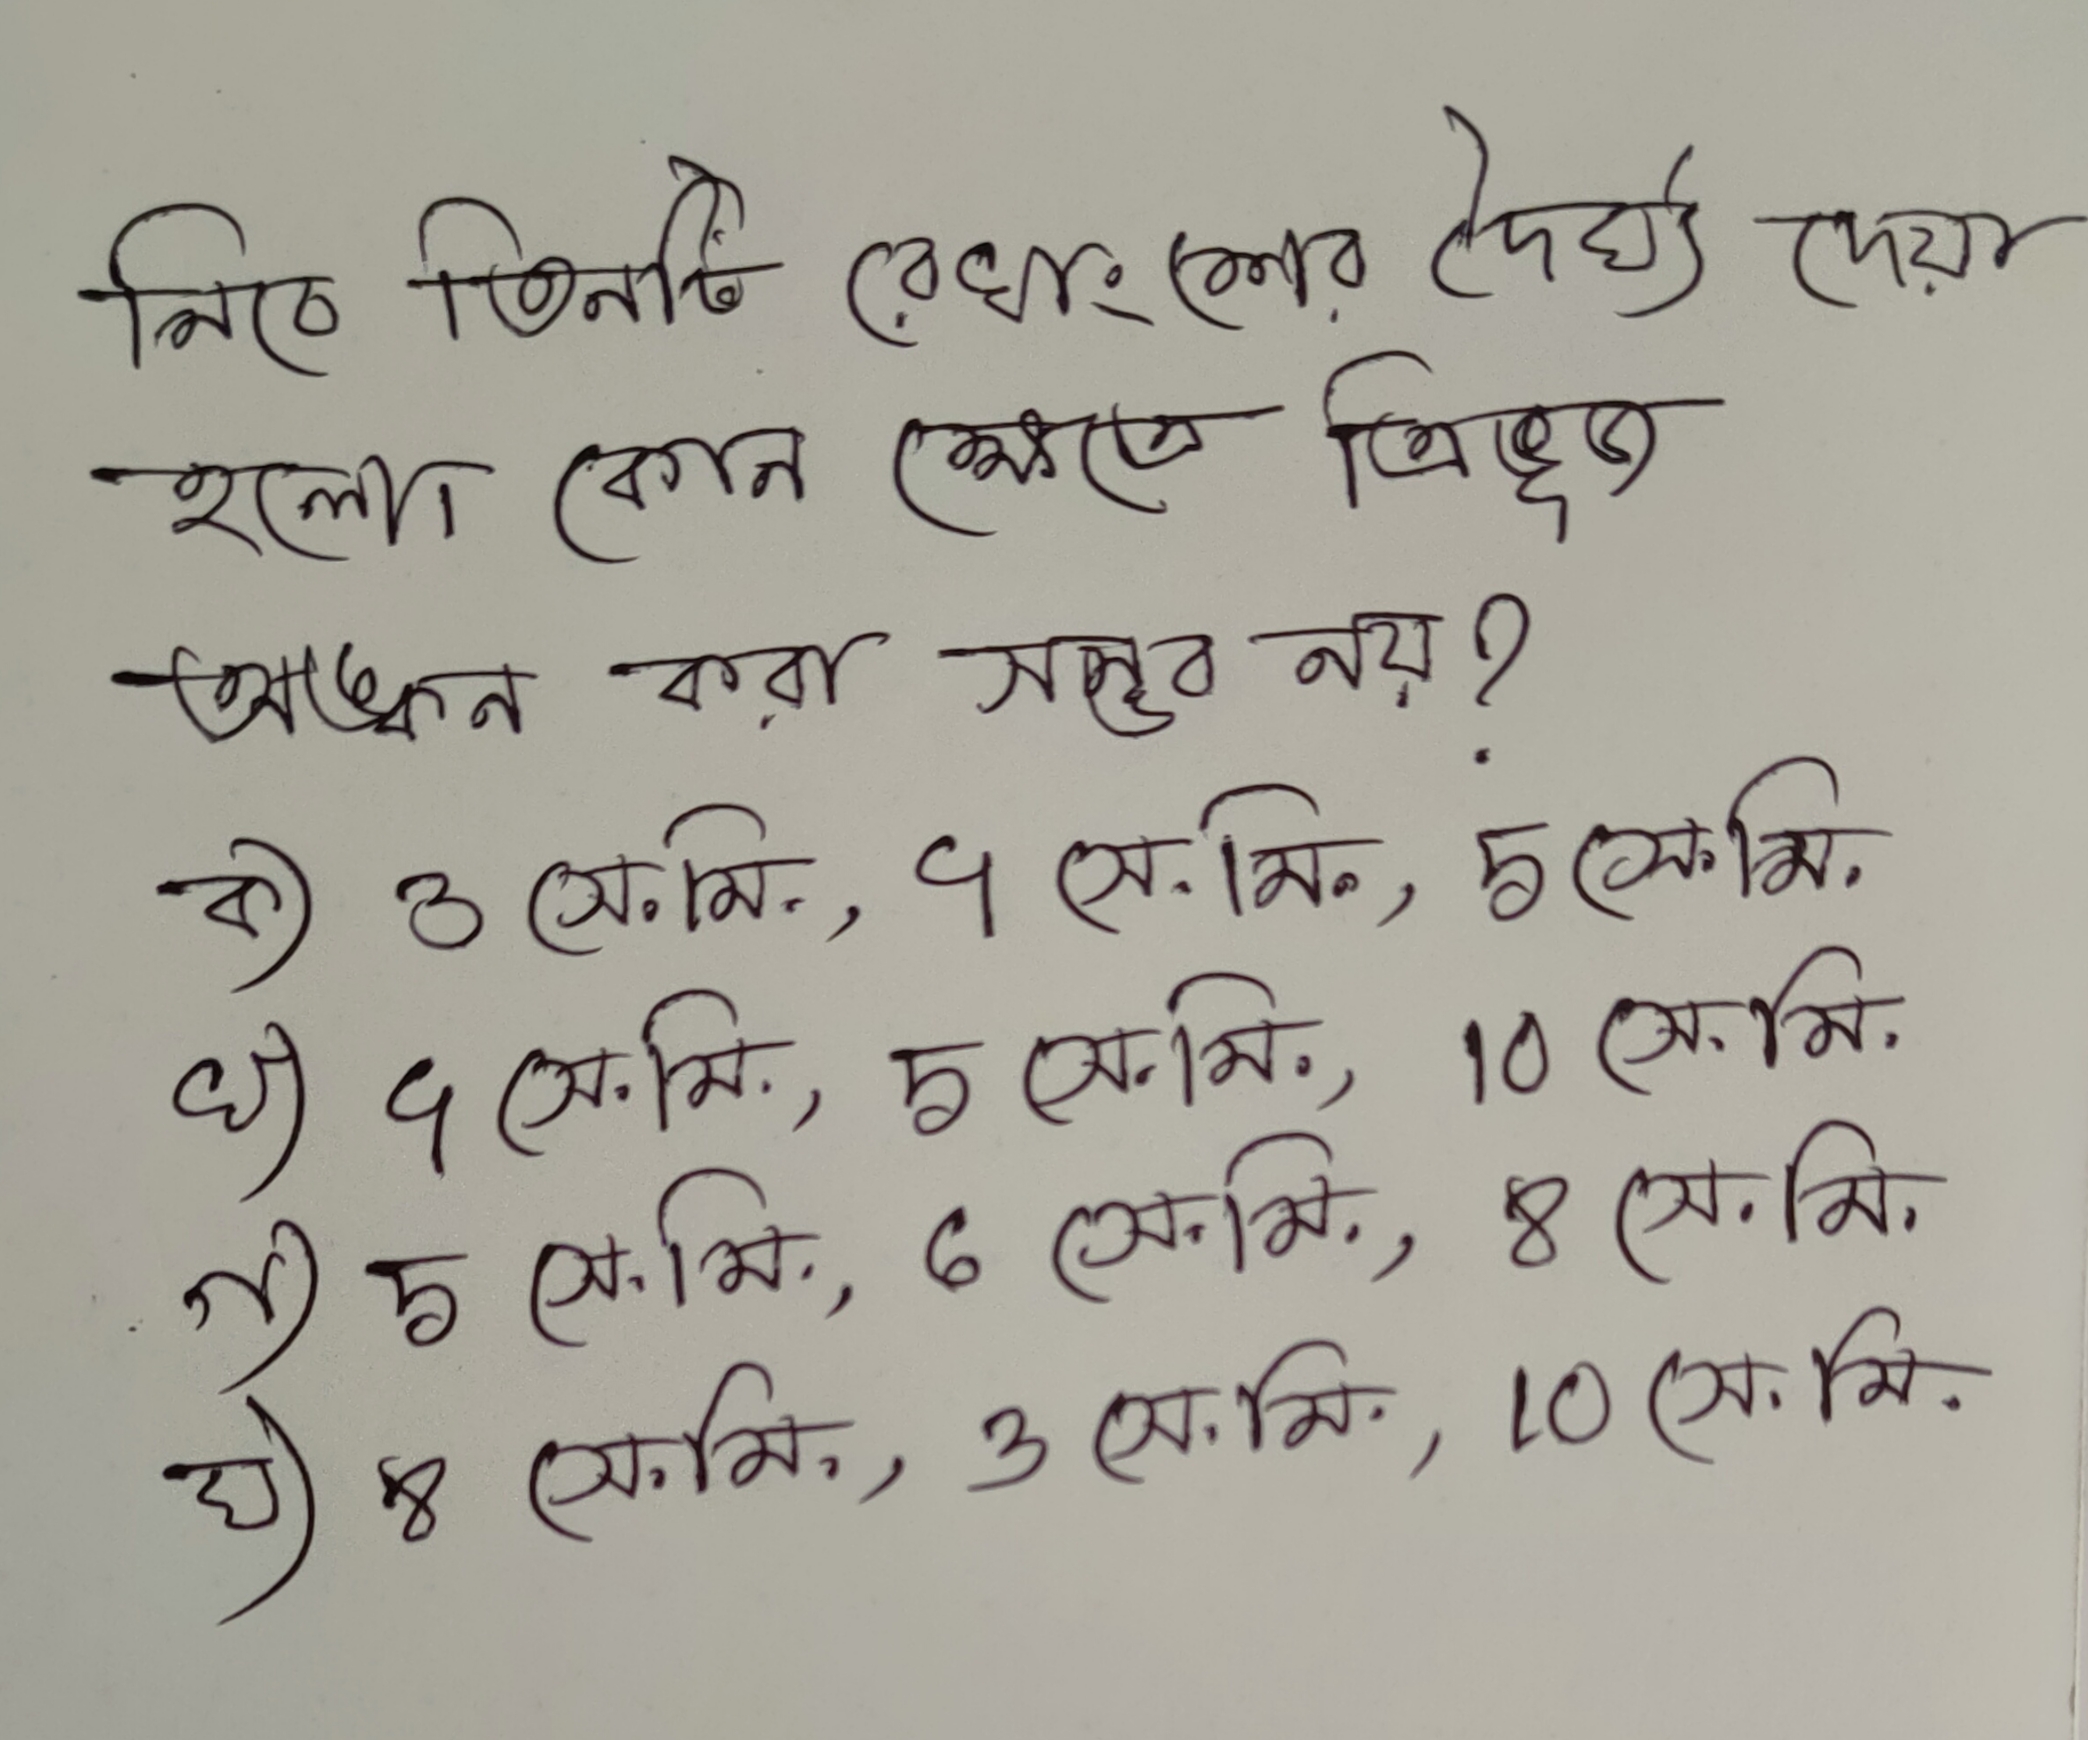 নিচে তিনটি রেখাংশের দৈর্ঘ্য দেয়া
হলো কোন ক্ষেত্রে ত্রিভুজ
অঙ্কন করা সম্ভব নয়?
ক) 3 সে.মি., 4 সে.মি., 5 সে.মি.
খ) 4 সে.মি., 5 সে.মি., 10 সে.মি.
গ) 5 সে.মি., 6 সে.মি., 8 সে.মি.
ঘ) 8 সে.মি., 3 সে.মি., 10 সে.মি.